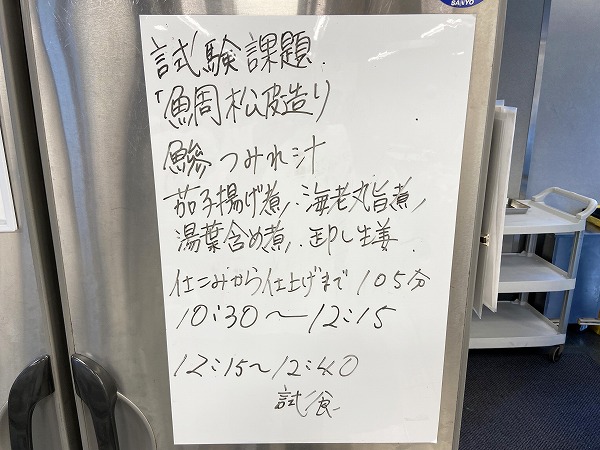 SANYO
試験課題
「鯛松皮造り
鯵つみれ汁
茄子揚げ煮、海老丸旨煮、
湯葉含め煮、卸し生姜
仕こみから仕上げまで 105分
10:30〜12:15
12:15〜12:40
試食